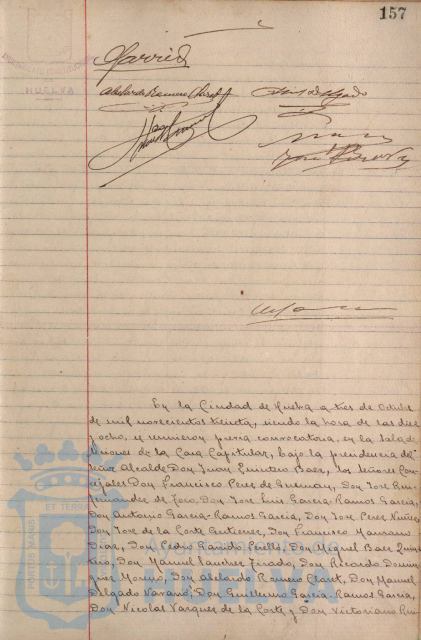 157
HUELVA
Garrido
Abelardo Romero Claret
En la Ciudad de Huelva a tres de Octubre
de mil novecientos treinta, siendo la hora de las diez
y ocho, se reunieron previa convocatoria, en la Sala de
Sesiones de la Casa Capitular, bajo la presidencia del
Señor Alcalde Don Juan Quintero Baez, los Señores Con-
cejales Don Francisco Perez de Guzman, Don Jose Ruiz
Fernandez de Toro, Don Jose Luis Garcia-Ramos Garcia,
Don Antonio Garcia-Ramos Garcia, Don Jose Perez Nuñez
Don Jose de la Corte Gutierrez, Don Francisco Manzano
Diaz, Don Pedro Garrido Perelló, Don Miguel Baez Quin-
tero, Don Manuel Sanchez Tirado, Don Ricardo Domin-
guez Moreno, Don Abelardo Romero Claret, Don Manuel
Delgado Navarro, Don Guillermo Garcia-Ramos Garcia,
Don Nicolas Vazquez de la Corte y Don Victoriano